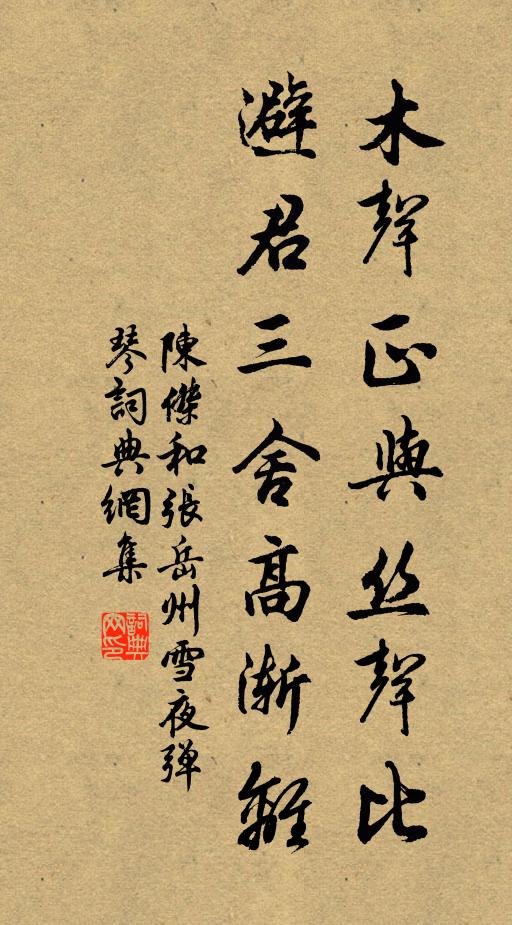 木聲正與丝聲比
避君三舍高漸離
陳傑和張岳州雪夜弹
琴詞典網集
詞典
网印